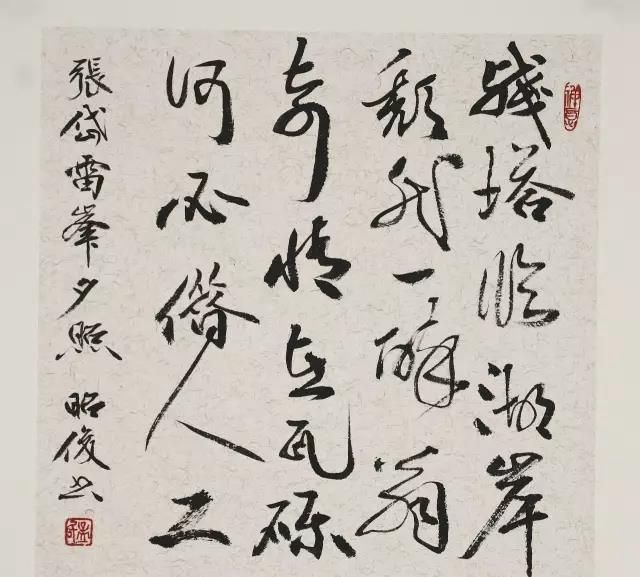 殘塔臨湖岸
頹然一醉翁
奇情在瓦礫
何必僣人工
張岱雷峯夕照 昭俊书